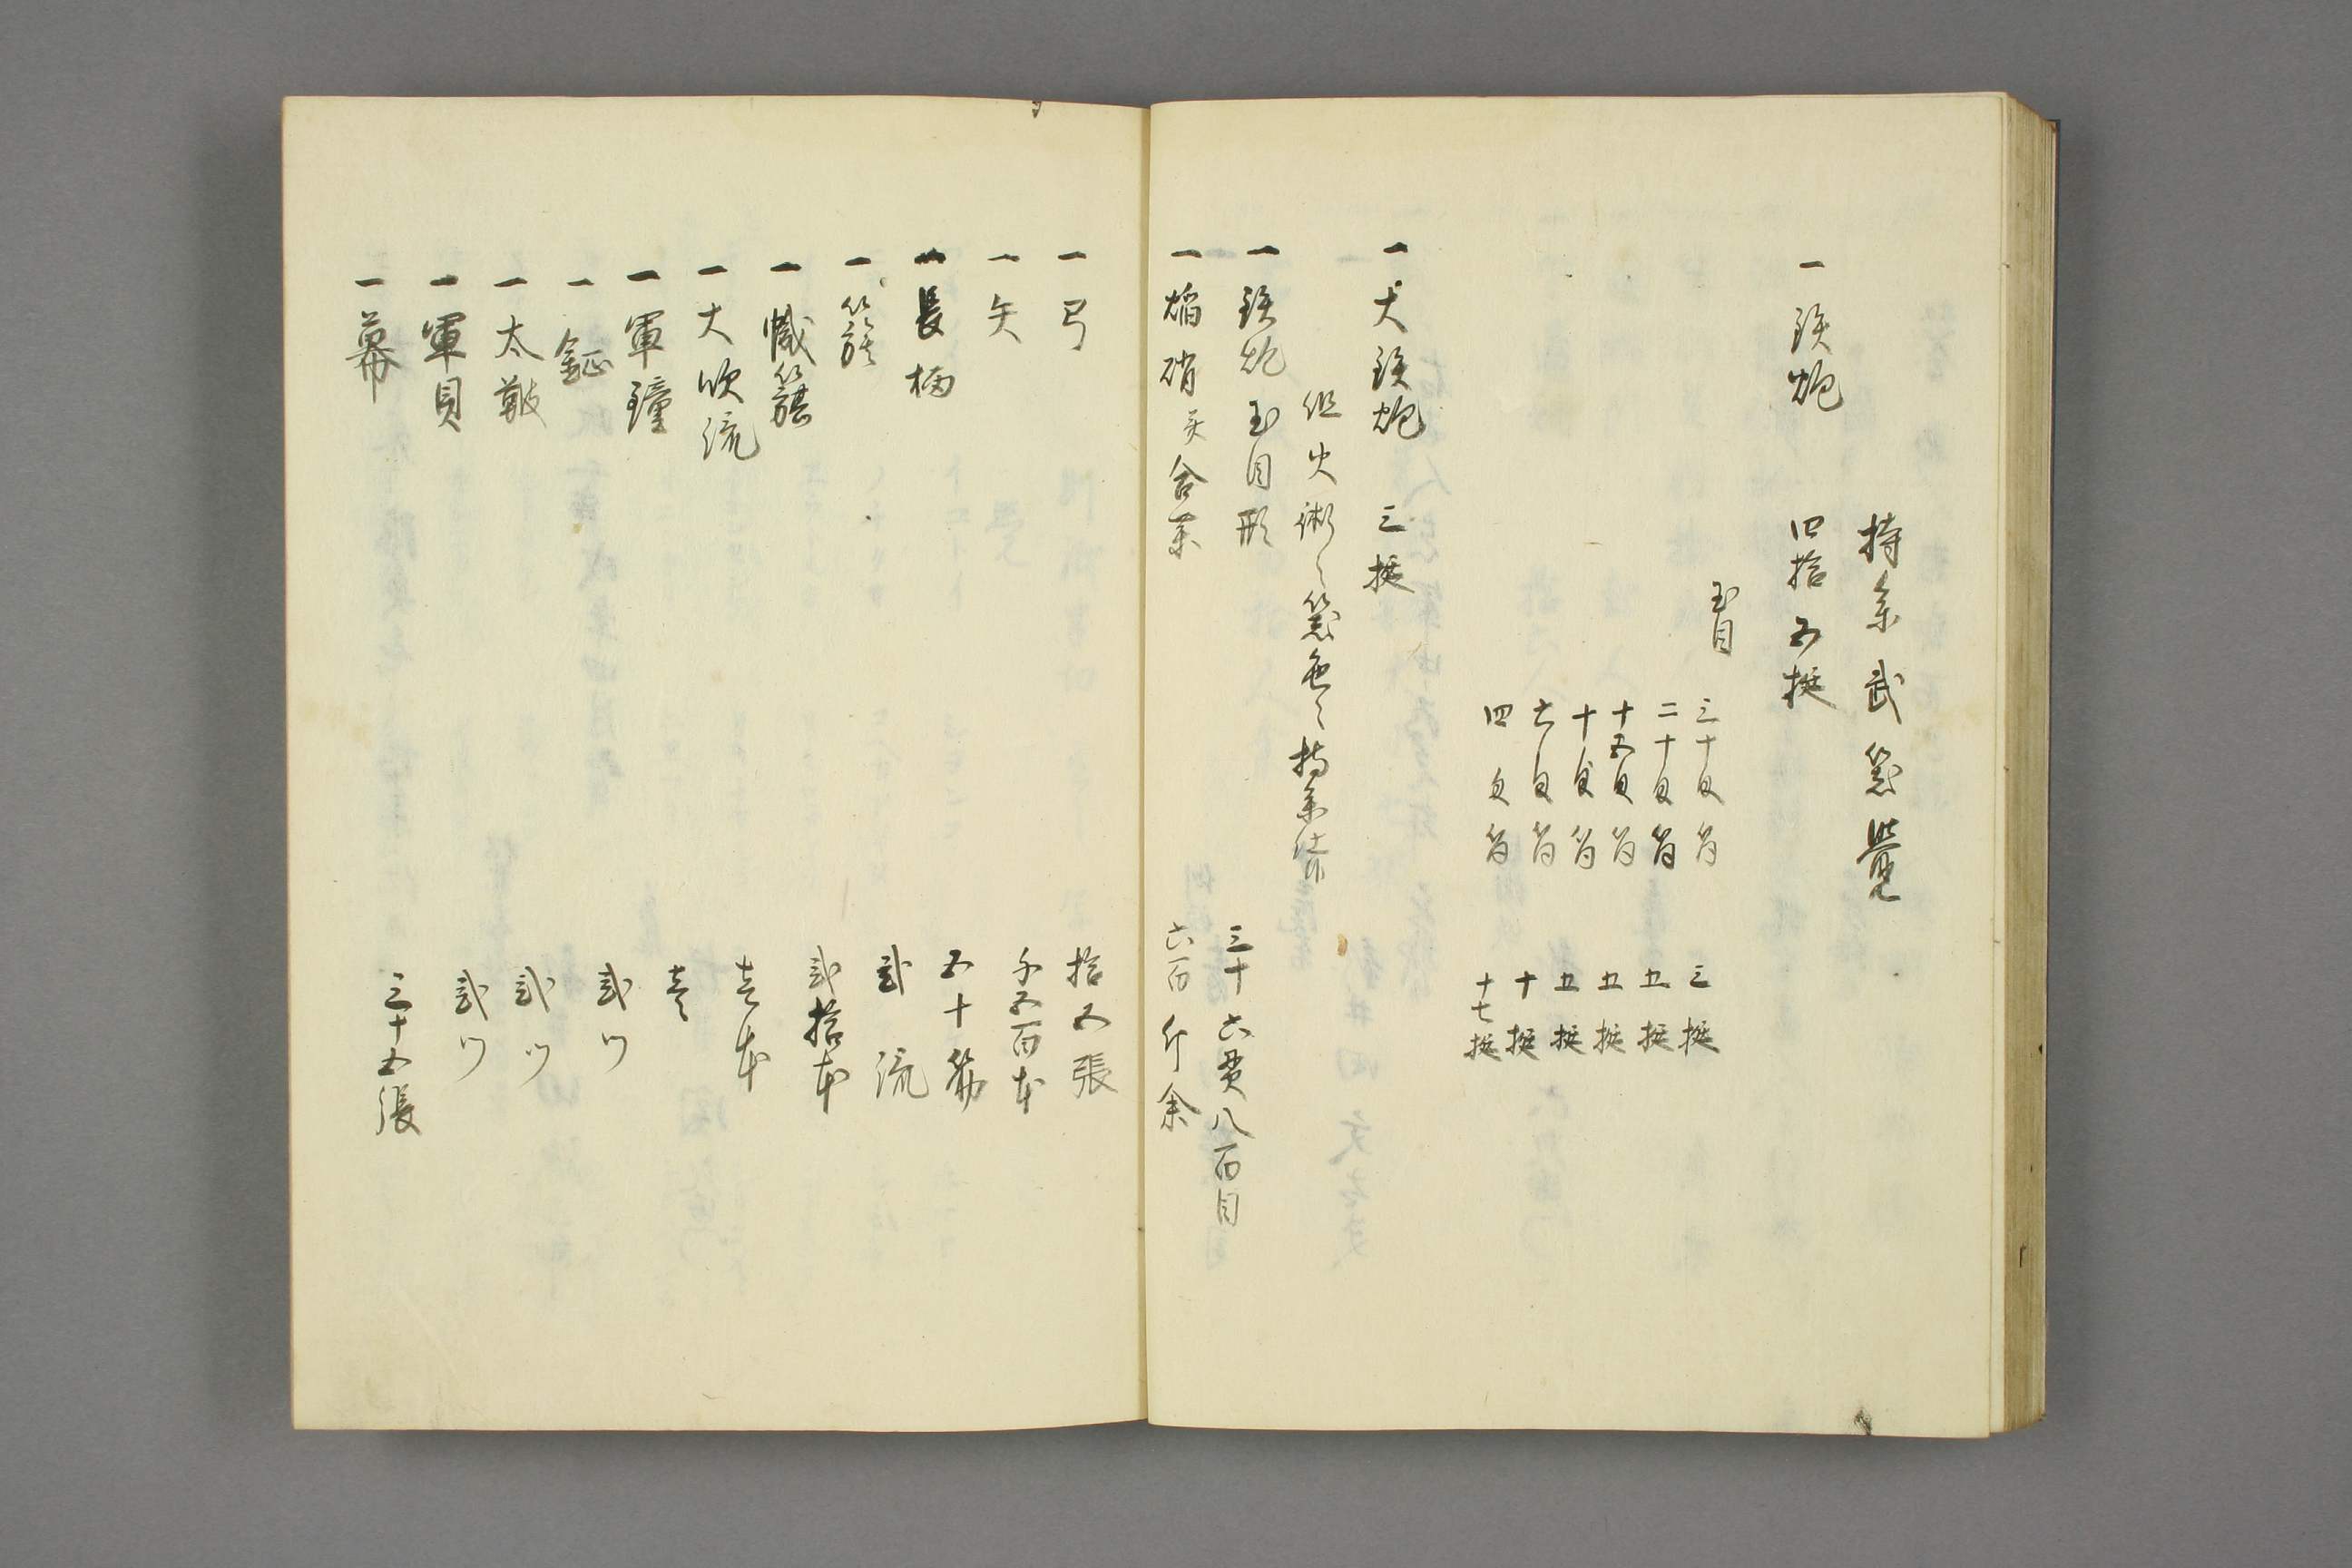 持參武器覺
一 鉄炮 四拾五挺
玉目
三十目筒 三挺
二十目筒 五挺
十五目筒 五挺
十目筒 五挺
六目筒 十挺
四目筒 十七挺
一 大鉄炮 三挺
但火術之器色々持參仕候
一 鉄炮玉目形 三十六貫八百目
一 焔硝 合薬 六百斤余
一 弓 拾五張
一 矢 千五百本
一 長柄 五十筋
一 籏 貳流
一 幟籏 貳拾本
一 大吹流 壱本
一 軍鐘 壱
一 鉦 貳ツ
一 太鼓 貳ツ
一 軍貝 貳ツ
一 幕 三十五張